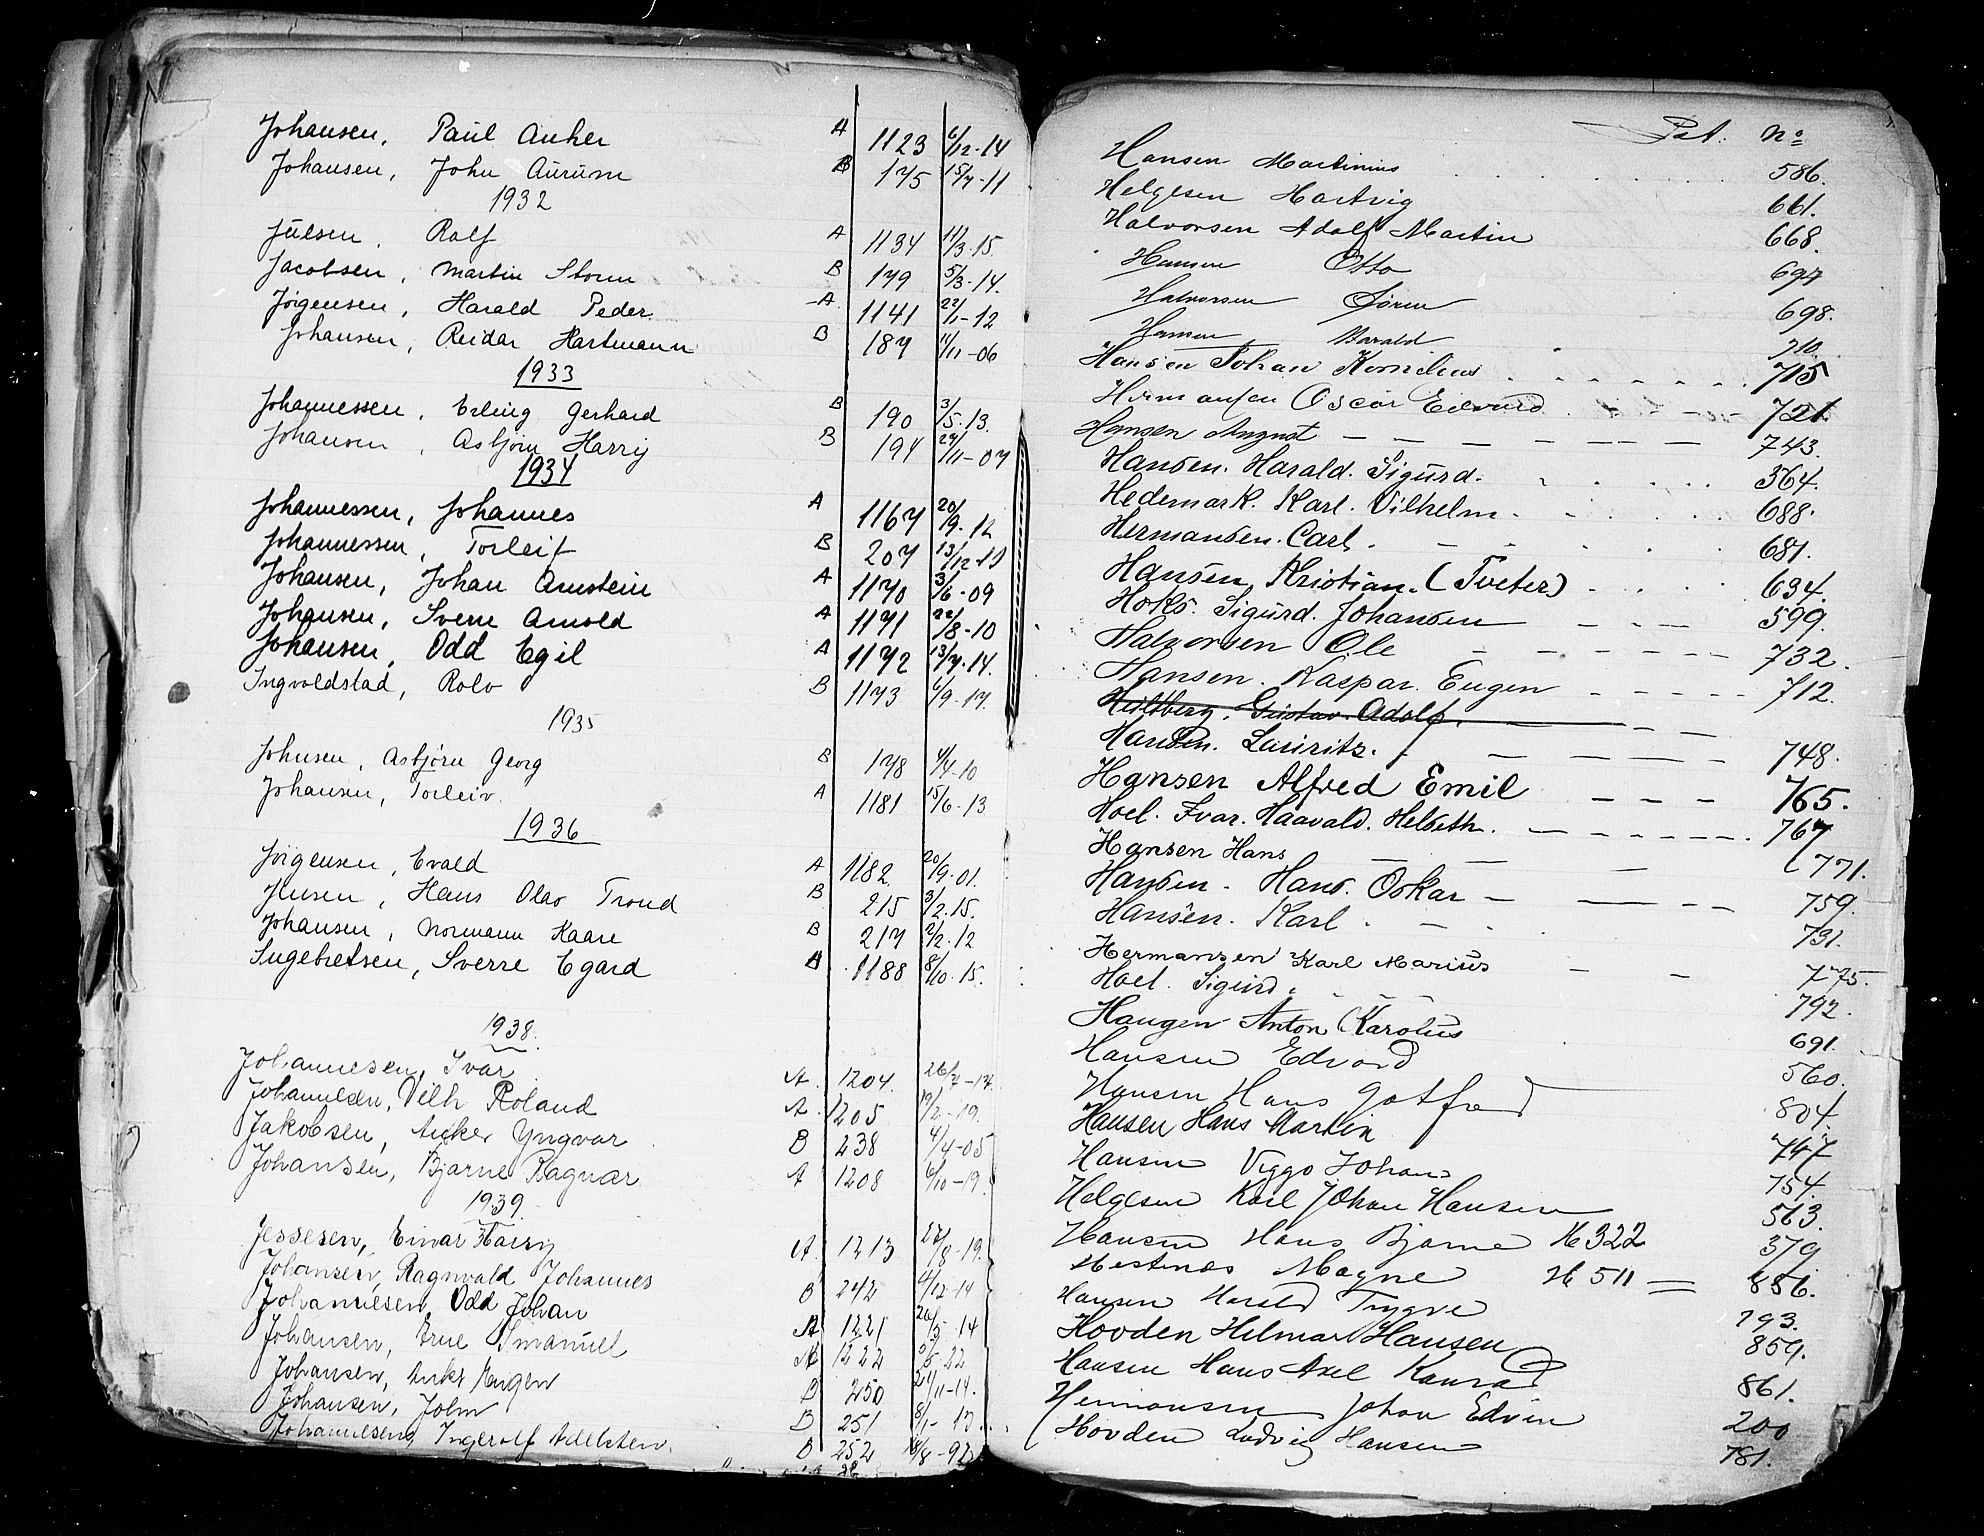 Johansen, Paul Anher A 1123 6/12-14
Johansen, John Aurum B 175 15/7-11
1932
Julsen, Rolf A 1134 11/3.15.
Jacobsen, Martin Storm B 179 5/3-14.
Jörgensen, Harald Peder A 1141 22/1-12
Johansen, Reidar Hartmann B 187 11/11-06
1933
Johannessen, Erling Gerhard B 190 3/5.13.
Johansen, Asbjörn Harry B 194 29/11-07
1934
Johannessen, Johannes A 1167 20/9.12
Johannessen, Torleif B 207 13/12-10
Johansen, Johan Arnstein A 1170 3/6-09
Johansen, Sverre Arnold A 1171 22/8-10
Johansen, Odd Egil A 1172 13/7.14.
Ingvoldstad, Rolv B 1173 6/9.17.
1935
Johnsen, Asbjörn Georg B 178 4/4-10
Johansen, Torleiv. A 1181 15/6-13
1936
Jörgensen, Evald A 1182 20/9-01.
Jensen, Hans Olav Trond B 215 3/2.15.
Johansen, Normann Kaare B 217 2/2.12
Ingebretsen, Sverre Egard A 1188 8/10.15.
1938.
Johannesen, Ivar A. 1204. 26/7-14.
Johannesen, Vilh Roland A. 1205 19/2-19.
Jakobsen, Anker Yngvar B 238 4/4-05
Johansen, Bjarne Ragnar A 1208 6/10-19.
1939.
Jessesen, Einar Harry A 1213 27/8-19.
Johansen, Ragnvald Johannes B 242 4/12-14
Johannesen, Odd Johan A 1221 26/5 14
Johansen, Arne Emanuel A 1222 5/5-22
Johansen, Anker Eugen B 250 21/11-14.
Johansen, John B 251 8/1-13.
Johannesen, Ingerolf Adelsten. B 252 18/8-92
Pat. No
Hansen Martinius 586.
Helgesen Hartvig 661.
Halvorsen Adolf Martin 668.
Hansen Otto 697
Halvorsen Sören 698.
Hansen Harald 710.
Hansen Johan Kornelius 715
Hermansen Oscar Edvard 721.
Hansen August 743.
Hansen. Harald. Sigurd. 364.
Hedemark. Karl. Vilhelm. 688.
Hermansen. Carl. 681.
Hansen, Kristian. (Tveter) 634.
Hoks. Sigurd. Johansen 599.
Halvorsen Ole 732.
Hansen. Kaspar. Eugen 712.
Gustav. Adolf.
Hansen. Lauritz. 748.
Hansen Alfred Emil 765.
Hoel. Ivar. Haavald. Helseth. 767
Hansen Hans 771.
Hansen. Hans. Oskar 759.
Hansen. Karl. 731.
Hermansen Karl Marius 775.
Hoel. Sigurd. 792.
Haugen Anton Karolius 691.
Hansen Edvard 560.
Hansen Hans Gotfred 804.
Hansen Hans Martin 747
Hansen Viggo Johan 754.
Helgesen Karl Johan Hansen 563.
Hansen Hans Bjarne K 322 379
Hestenes Magne H 511 886.
Hansen Harald Trygve 793.
Hovden Hilmar Hansen 859.
Hansen Hans Axel Konrad 861.
Hermansen Johan Edvin 200
Hovden Ludvig Hansen 781.